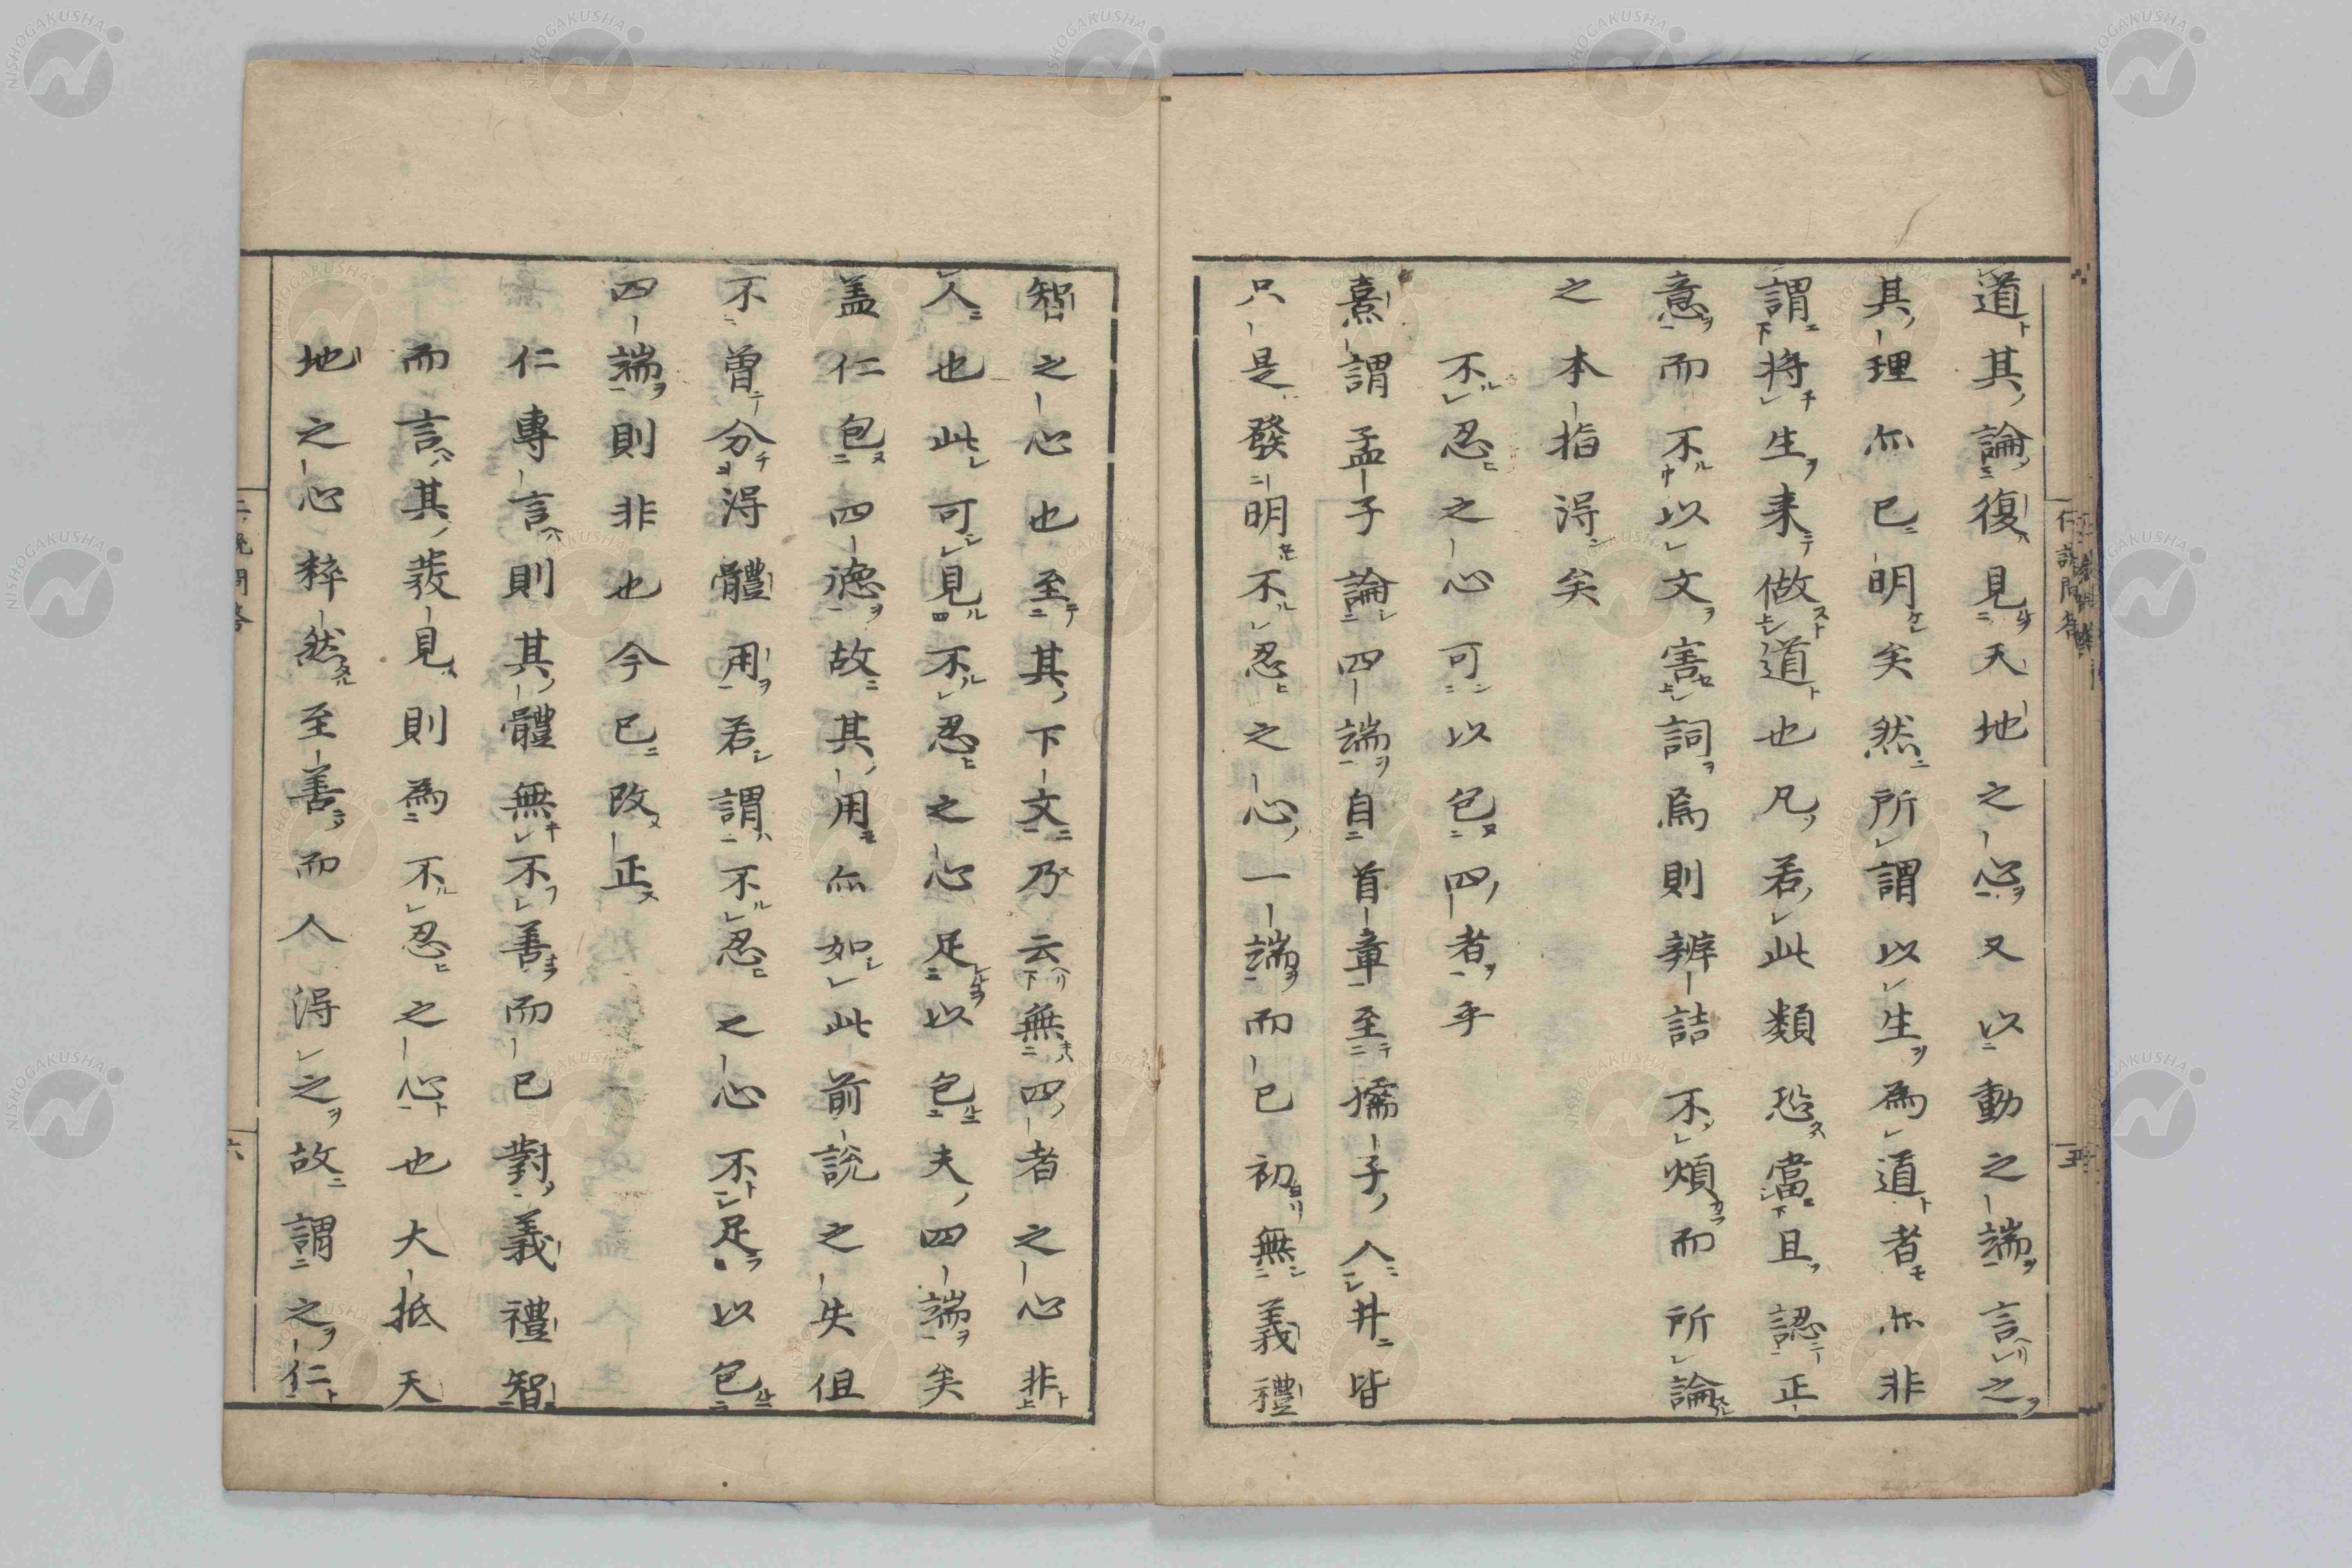 道其論復見天地之心又以動之端言之
其理亦已明矣然所謂以生為道者亦非
謂將生来做道也凡若此類恐當且認正
意而不以文害詞焉則辨詰不煩而所論
之本指得矣
不忍之心可以包四者乎
熹謂孟子論四端自首章至孺子入井皆
只是發明不忍之心一端而已初無義禮
智之心也至其下文乃云無四者之心非
人也此可見不忍之心足以包夫四端矣
盖仁包四德故其用亦如此前說之失但
不曾分得體用若謂不忍之心不足以包
四端則非也今已改正
仁專言則其體無不善而已對義禮智
而言其發見則為不忍之心也大抵天
地之心粹然至善而人得之故謂之仁
仁說問答
五
六
NISHOGAKUSHA